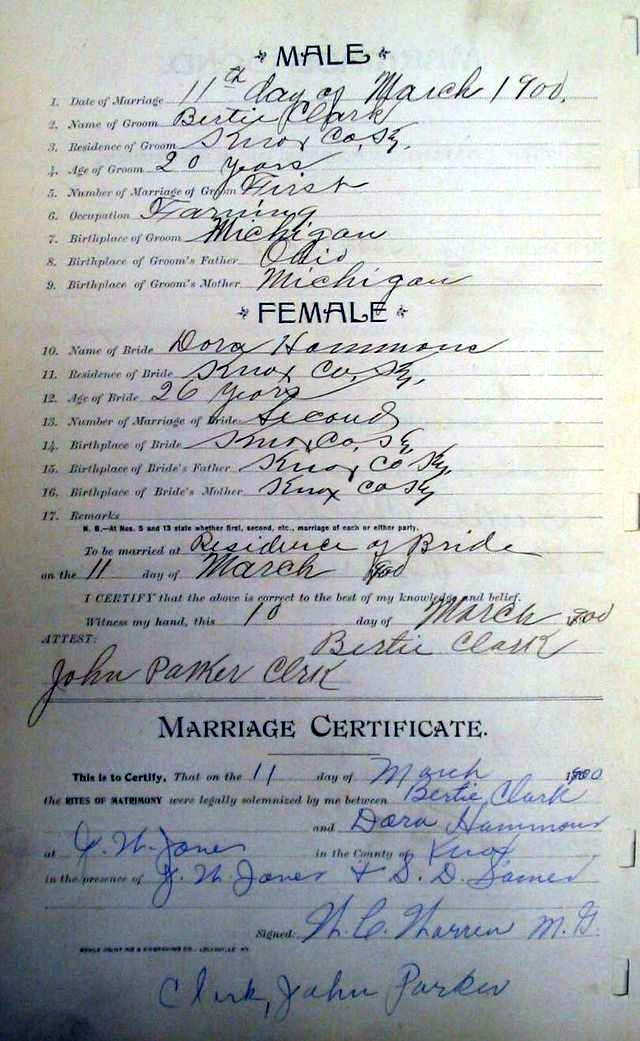 MALE
1. Date of Marriage 11th day of March 1900.
2. Name of Groom Bertie Clark
3. Residence of Groom Knox Co, Ky.
4. Age of Groom 20 years
5. Number of Marriage of Groom First
6. Occupation Farming
7. Birthplace of Groom Michigan
8. Birthplace of Groom's Father Ohio
9. Birthplace of Groom's Mother Michigan
FEMALE
10. Name of Bride Dora Hammons
11. Residence of Bride Knox Co, Ky,
12. Age of Bride 26 years
13. Number of Marriage of Bride Second
14. Birthplace of Bride Knox Co, Ky
15. Birthplace of Bride's Father Knox Co Ky,
16. Birthplace of Bride's Mother Knox Co Ky
17. Remarks
N. B.—At Nos. 5 and 13 state whether first, second, etc., marriage of each or either party.
To be married at Residence of Bride
on the 11 day of March 1900
I CERTIFY that the above is correct to the best of my knowledge and belief.
Witness my hand, this 10 day of March 1900
Bertie Clark
ATTEST:
John Parker Clrk
MARRIAGE CERTIFICATE.
This is to Certify, That on the 11 day of March 1900
the RITES OF MATRIMONY were legally solemnized by me between Bertie Clark
and Dora Hammons
at J. W. Jones in the County of Knox
in the presence of J. W. Jones & S. D.
Signed: W. C. Warren M. G.
Clerk, John Parker